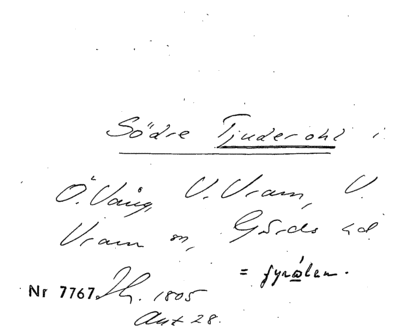 Södre Tjuderohl i
Ö. Vång, V. Vram, V.
Vram sn, Gärds hd
= fyrålen.
Nr 7767 Th. 1805
Akt 28.